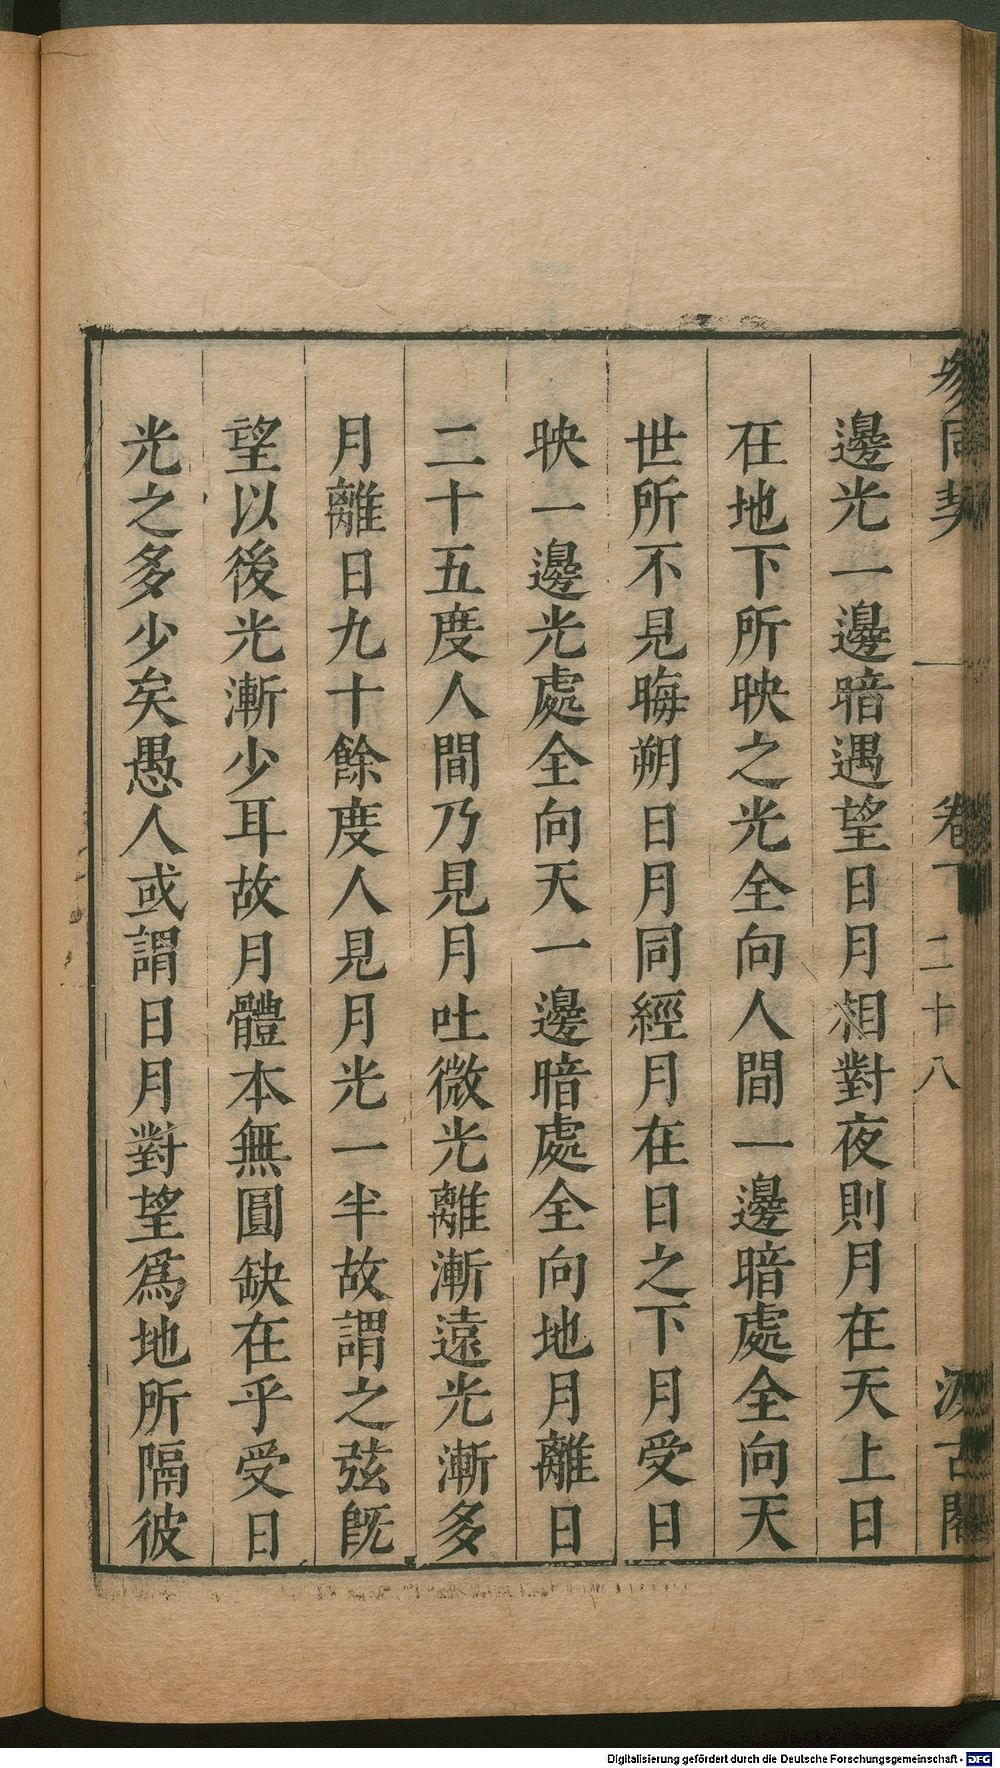 參同契 卷下 二十八 汲古閣
邊光一邊暗遇望日月相對夜則月在天上日
在地下所映之光全向人間一邊暗處全向天
世所不見晦朔日月同經月在日之下月受日
映一邊光處全向天一邊暗處全向地月離日
二十五度人間乃見月吐微光離漸遠光漸多
月離日九十餘度人見月光一半故謂之弦旣
望以後光漸少耳故月體本無圓缺在乎受日
光之多少矣愚人或謂日月對望爲地所隔彼
Digitalisierung gefördert durch die Deutsche Forschungsgemeinschaft - DFG